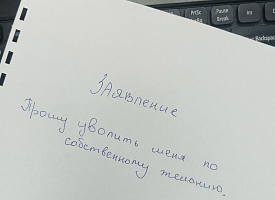 PrtSc
Pause
Break
Ins
Backspace
Заявление
Прошу уволить меня по
собственному желанию.